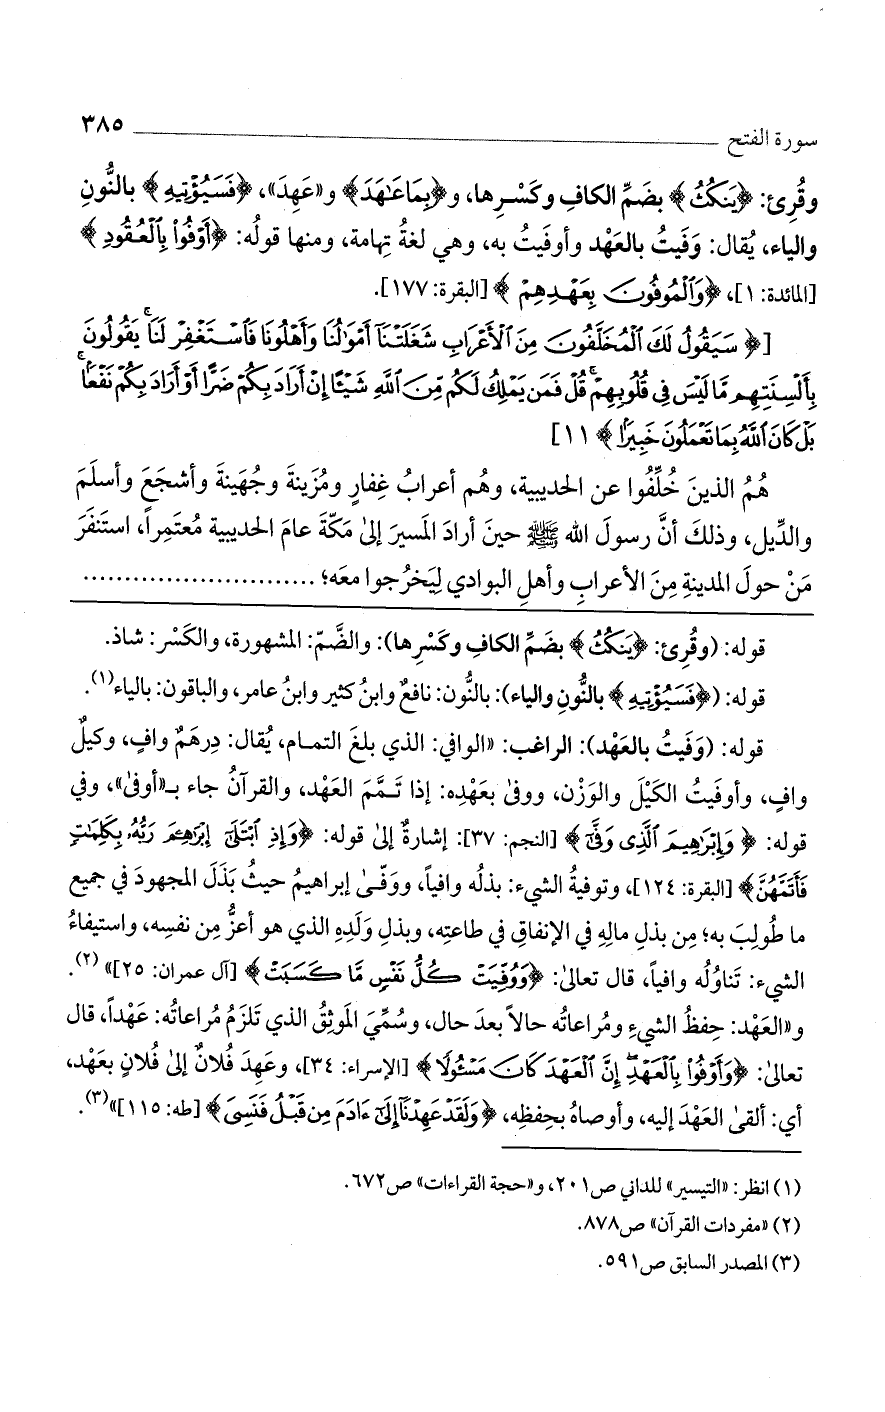 سورة الفتح ٣٨٥
وقُرِئ: ﴿يَنكُثُ﴾ بضَمِّ الكافِ وكَسْرِها، و﴿بِمَا عَاهَدَ﴾ و«عَهِدَ»، ﴿فَسَيُؤْتِيهِ﴾ بالنُّونِ
والياء، يُقال: وَفَيتُ بالعَهْد وأوفَيتُ به، وهي لغةُ تِهامة، ومنها قولُه: ﴿أَوْفُوا۟ بِالْعُقُودِ﴾
[المائدة: ١]، ﴿وَالْمُوفُونَ بِعَهْدِهِمْ﴾ [البقرة: ١٧٧].
[﴿سَيَقُولُ لَكَ الْمُخَلَّفُونَ مِنَ الْأَعْرَابِ شَغَلَتْنَا أَمْوَالُنَا وَأَهْلُونَا فَاسْتَغْفِرْ لَنَا ۚ يَقُولُونَ
بِأَلْسِنَتِهِم مَّا لَيْسَ فِي قُلُوبِهِمْ ۚ قُلْ فَمَن يَمْلِكُ لَكُم مِّنَ اللَّهِ شَيْئًا إِنْ أَرَادَ بِكُمْ ضَرًّا أَوْ أَرَادَ بِكُمْ نَفْعًا ۚ
بَلْ كَانَ اللَّهُ بِمَا تَعْمَلُونَ خَبِيرًا﴾ ١١]
هُمُ الذينَ خُلِّفُوا عن الحديبية، وهُم أعرابُ غِفارٍ ومُزَينةَ وجُهَينةَ وأشجَعَ وأسلَمَ
والدِّيل، وذلكَ أنَّ رسولَ الله ﷺ حينَ أرادَ المَسيرَ إلىٰ مَكّةَ عامَ الحديبية مُعتَمِراً، استَنفَرَ
مَنْ حولَ المدينةِ مِنَ الأعرابِ وأهلِ البوادي لِيَخرُجوا معَه؛ ............................
قوله: (وقُرِئ: ﴿يَنكُثُ﴾ بضَمِّ الكافِ وكَسْرِها): والضَّمّ: المشهورة، والكَسْر: شاذ.
قوله: (﴿فَسَيُؤْتِيهِ﴾ بالنُّونِ والياء): بالنُّون: نافعٌ وابنُ كثير وابنُ عامر، والباقون: بالياء(١).
قوله: (وَفَيتُ بالعَهْد): الراغب: «الوافي: الذي بلغَ التمام، يُقال: دِرهَمٌ وافٍ، وكيلٌ
وافٍ، وأوفَيتُ الكَيْلَ والوَزْن، ووفىٰ بعَهْدِه: إذا تَمَّمَ العَهْد، والقرآنُ جاء بـ«أوفىٰ»، وفي
قوله: ﴿وَإِبْرَاهِيمَ الَّذِي وَفَّىٰ﴾ [النجم: ٣٧]: إشارةٌ إلىٰ قوله: ﴿وَإِذِ ابْتَلَىٰ إِبْرَاهِيمَ رَبُّهُ بِكَلِمَاتٍ
فَأَتَمَّهُنَّ﴾ [البقرة: ١٢٤]، وتوفيةُ الشيء: بذلُه وافياً، ووَفّىٰ إبراهيمُ حيثُ بَذَلَ المجهودَ في جميع
ما طُولِبَ به؛ مِن بذلِ مالِهِ في الإنفاقِ في طاعتِه، وبذلِ وَلَدِهِ الذي هو أعزُّ مِن نفسِه، واستيفاءُ
الشيء: تَناوُلُه وافياً، قال تعالىٰ: ﴿وَوُفِّيَتْ كُلُّ نَفْسٍ مَّا كَسَبَتْ﴾ [آل عمران: ٢٥]»(٢).
و«العَهْد: حِفظُ الشيءِ ومُراعاتُه حالاً بعدَ حال، وسُمِّيَ المَوثِقُ الذي تَلزَمُ مُراعاتُه: عَهْداً، قال
تعالىٰ: ﴿وَأَوْفُوا۟ بِالْعَهْدِ ۖ إِنَّ الْعَهْدَ كَانَ مَسْئُولًا﴾ [الإسراء: ٣٤]، وعَهِدَ فُلانٌ إلىٰ فُلانٍ بعَهْد،
أي: ألقىٰ العَهْدَ إليه، وأوصاهُ بحِفظِه، ﴿وَلَقَدْ عَهِدْنَا إِلَىٰ ءَادَمَ مِن قَبْلُ فَنَسِيَ﴾ [طه: ١١٥]»(٣).
(١) انظر: «التيسير» للداني ص٢٠١، و«حجة القراءات» ص٦٧٢.
(٢) «مفردات القرآن» ص٨٧٨.
(٣) المصدر السابق ص٥٩١.